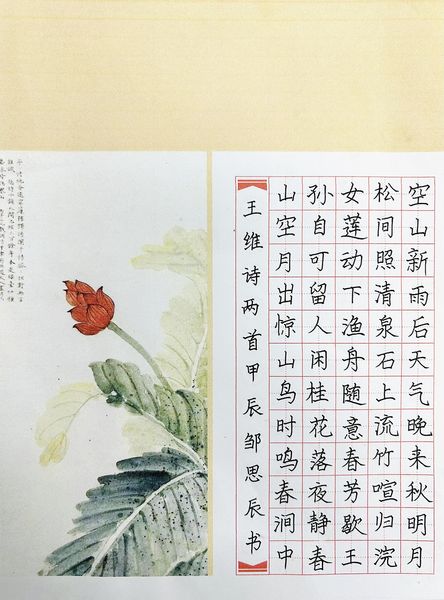 空山新雨后天气晚来秋明月
松间照清泉石上流竹喧归浣
女莲动下渔舟随意春芳歇王
孙自可留人闲桂花落夜静春
山空月出惊山鸟时鸣春涧中
王维诗两首甲辰邹思辰书